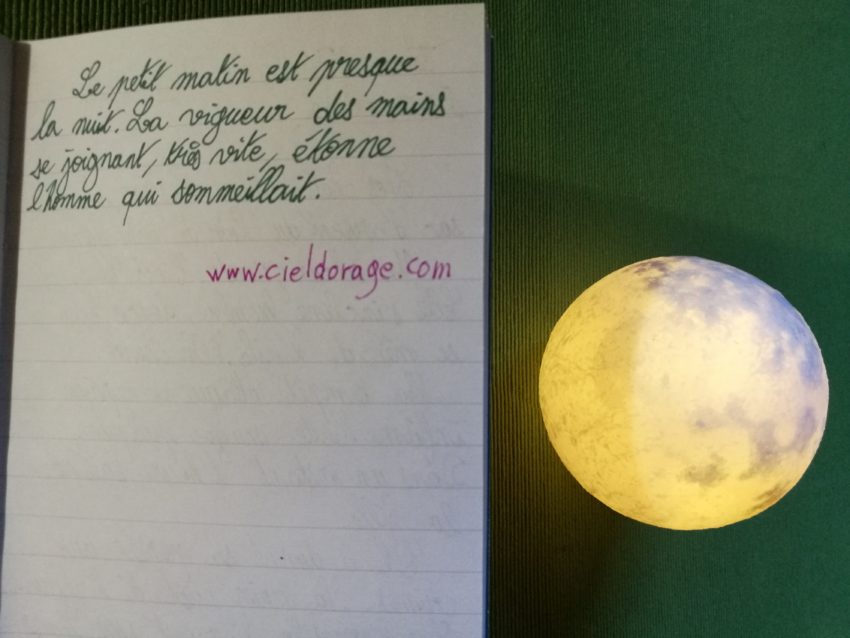 Le petit matin est presque
la nuit. La vigueur des mains
se joignant, très vite, étonne
l'homme qui sommeillait.
www.cieldorage.com